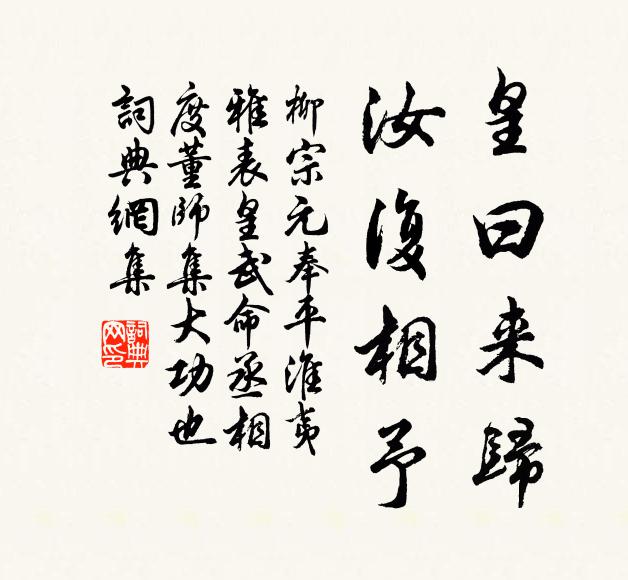 皇曰来歸
汝復相予
柳宗元奉平淮夷
雅表皇武命丞相
度董師集大功也
詞典網集
詞典
网印